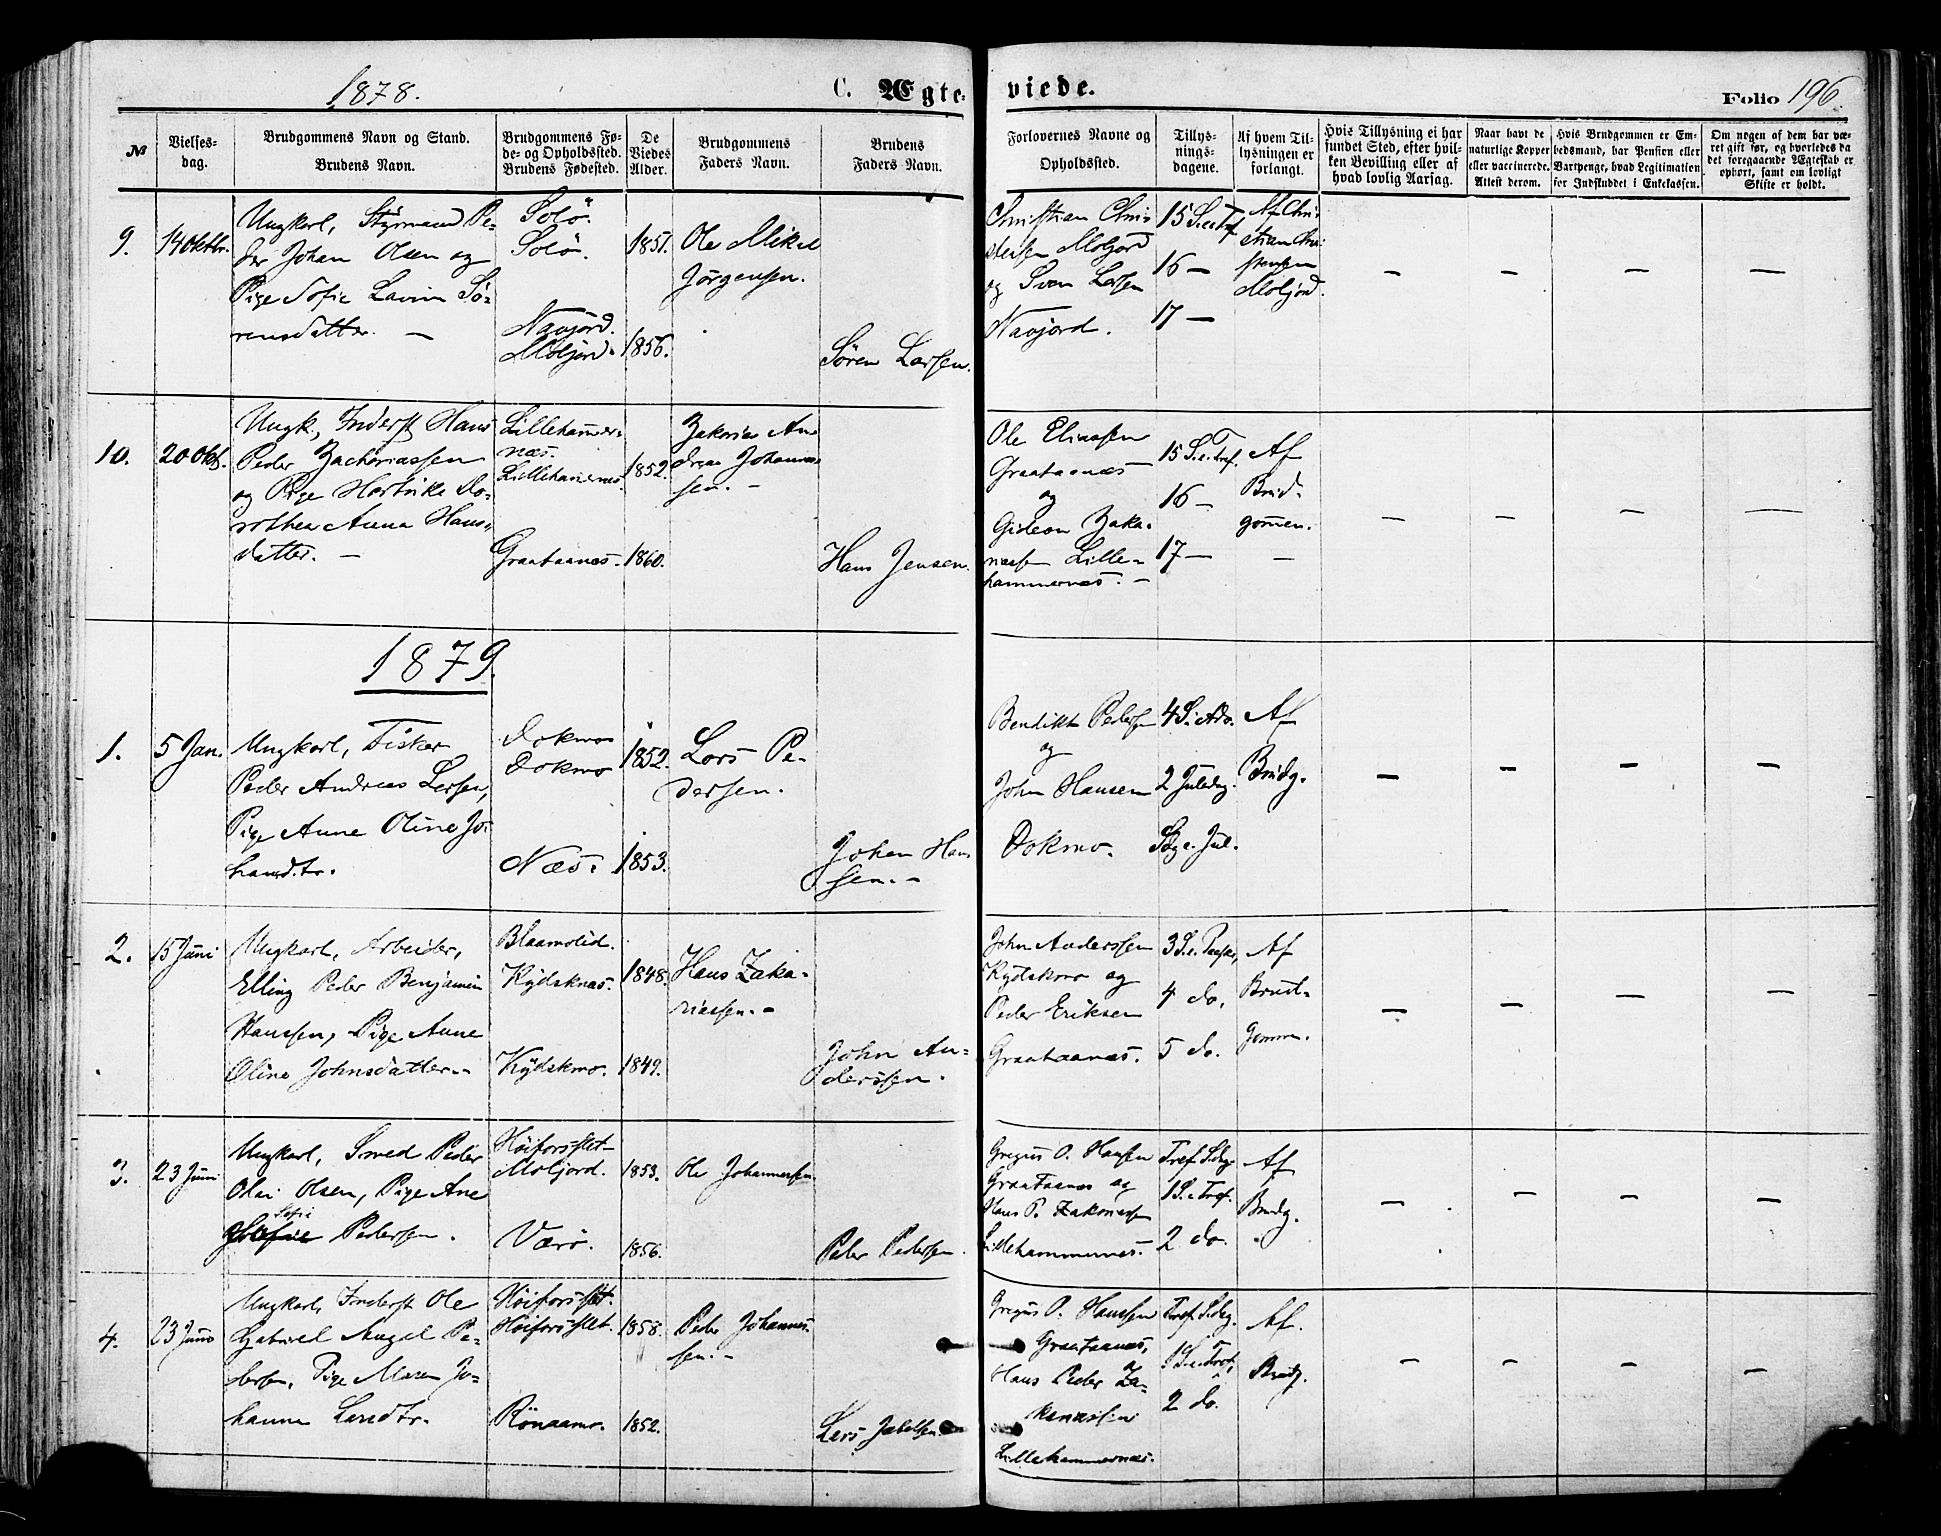 1878.
C. Ægte-
viede.
Folio 196.
№
Vielses-
dag.
Brudgommens Navn og Stand.
Brudens Navn.
Brudgommens Fø-
de- og Opholdssted.
Brudens Fødested.
De
Viedes
Alder.
Brudgommens
Faders Navn.
Brudens
Faders Navn.
Forlovernes Navne og
Opholdssted.
Tillys-
nings-
dagene.
Af hvem Til-
lysningen er
forlangt.
Hvis Tillysning ei har
fundet Sted, efter hvil-
ken Bevilling eller af
hvad lovlig Aarsag.
Naar havt de
naturlige Kopper
eller vaccinerede.
Attest derom.
Hvis Brudgommen er Em-
bedsmand, har Pension eller
Vartpenge, hvad Legitimation
for Indskuddet i Enkekassen.
Om nogen af dem har væ-
ret gift før, og hvorledes da
det foregaaende Ægteskab er
ophørt, samt om lovligt
Skifte er holdt.
9.
14 Oktbr.
Ungkarl, Styrmand Pe-
der Johan Olsen og
Pige Sofie Lavina Sö-
rensdatter. —
Solö.
Solö.
Navjord.
Moljord.
1851.
1856.
Ole Mikal
Jörgensen.
Sören Larsen.
Christian Chri
stensen Moljord
og Sven Larsen
Navjord.
15 S. e. Tref.
16 —
17 —
Af Chri-
stian Chri-
stensen
Moljord.
— — — —
10.
20 Okt.
Ungk., Inderst Hans
Peder Zachariassen
og Pige Hartvike Do-
rothea Anna Hans-
datter. —
Lillehamer-
næs.
Lillehamernæs.
Graataanæs.
1852.
1860.
Zakarias An
dreas Johannes
sen. —
Hans Jensen.
Ole Eliassen
Graataanæs
og
Gideon Zaka-
riassen Lille-
hammernæs. —
15 S. e. Tref.
16 —
17 —
Af
Brud-
gommen.
—
— — — —
1879.
1.
5 Jan.
Ungkarl, Fisker
Peder Andreas Larsen,
Pige Anne Oline Jo-
hansd.tr.
Dokmo
Dokmo
Næs.
1852.
1853.
Lars Pe-
dersen.
Johan Han
sen. —
Bendikt Pedersen
og
John Hansen
Dokmo.
4 S. i Adv.
2 Juledag.
S. e. Jul.
Af
Brudg.
— — — —
2.
15 Juni
Ungkarl, Arbeider,
Elling Peder Benjamin
Hanssen, Pige Anne
Oline Johnsdatter. -
Blaamolid.
Kydsknæs.
Kydskmo.
1848.
1849.
Hans Zaka-
riassen. -
John An-
derssen.
John Anderssen
Kydskmo og
Peder Eriksen
Graataanæs.
3 S. e. Paaske,
4 do.
5 do.
Af
Brud-
gommen.
— — — —
3.
23 Juni
Ungkarl, Smed Peder
Olai Olsen, Pige Ane
Sofie
Pedersen.
Höiforsslet
Moljord.
Værö.
1853.
1856.
Ole Johannessen.
Peder Pedersen.
Gregus O. Hansen
Graataanæs og
Hans P. Zakariassen
Lillehammernæs.
Tref. S.dag.
1 S. e. Tref.
2 do.
Af
Brudg.
— — — —
4.
23 Juni
Ungkarl, Inderst Ole
Gabriel Angel Pe-
dersen, Pige Maren Jo-
hanna Larsdtr.
Höiforsslet.
Höiforsslet.
Rönaamo.
1858.
1852.
Peder Johannes-
sen. -
Lars
Gregus O. Hanssen
Graataanæs,
Hans Peder Za-
kariassen
Lillehammernæs.
Tref. S.dag.
1 S. e. Tref.
2 do.
Af.
Brudg.
— — — —